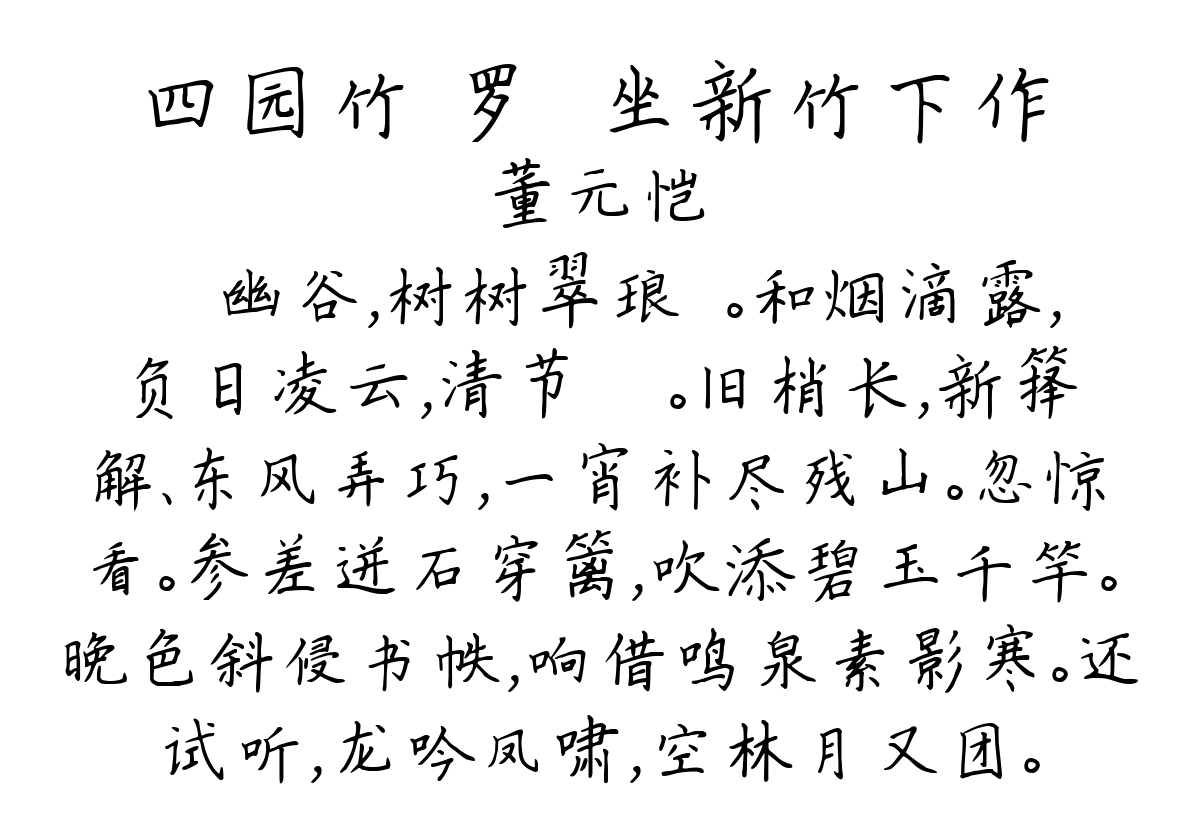 四园竹 罗 坐新竹下作
董元恺
幽谷,树树翠琅 。和烟滴露,
负日凌云,清节 。旧梢长,新箨
解、东风弄巧,一宵补尽残山。忽惊
看。参差迸石穿篱,吹添碧玉千竿。
晚色斜侵书帙,响借鸣泉素影寒。还
试听,龙吟凤啸,空林月又团。